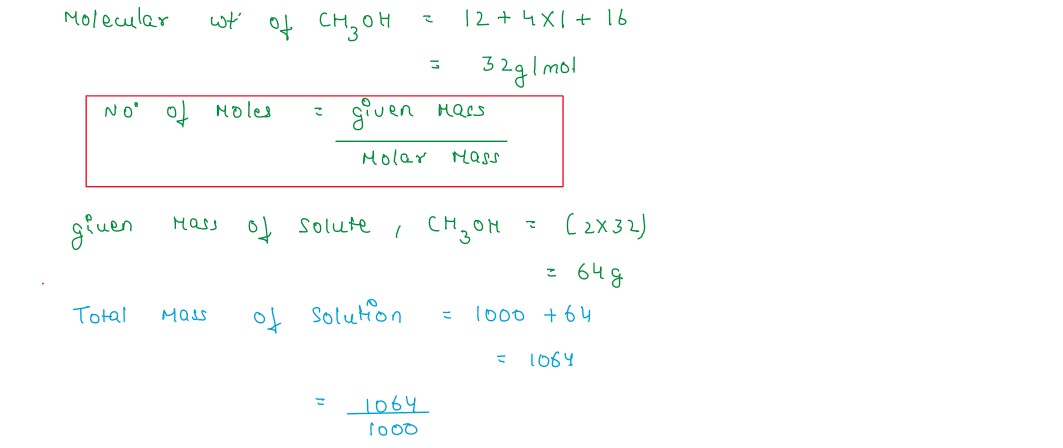 Molecular wt. of CH₃OH = 12 + 4×1 + 16
= 32g/mol
No. of Moles = given Mass
Molar Mass
given Mass of solute, CH₃OH = (2×32)
= 64g
Total Mass of Solution = 1000 + 64
= 1064
= 1064
1000